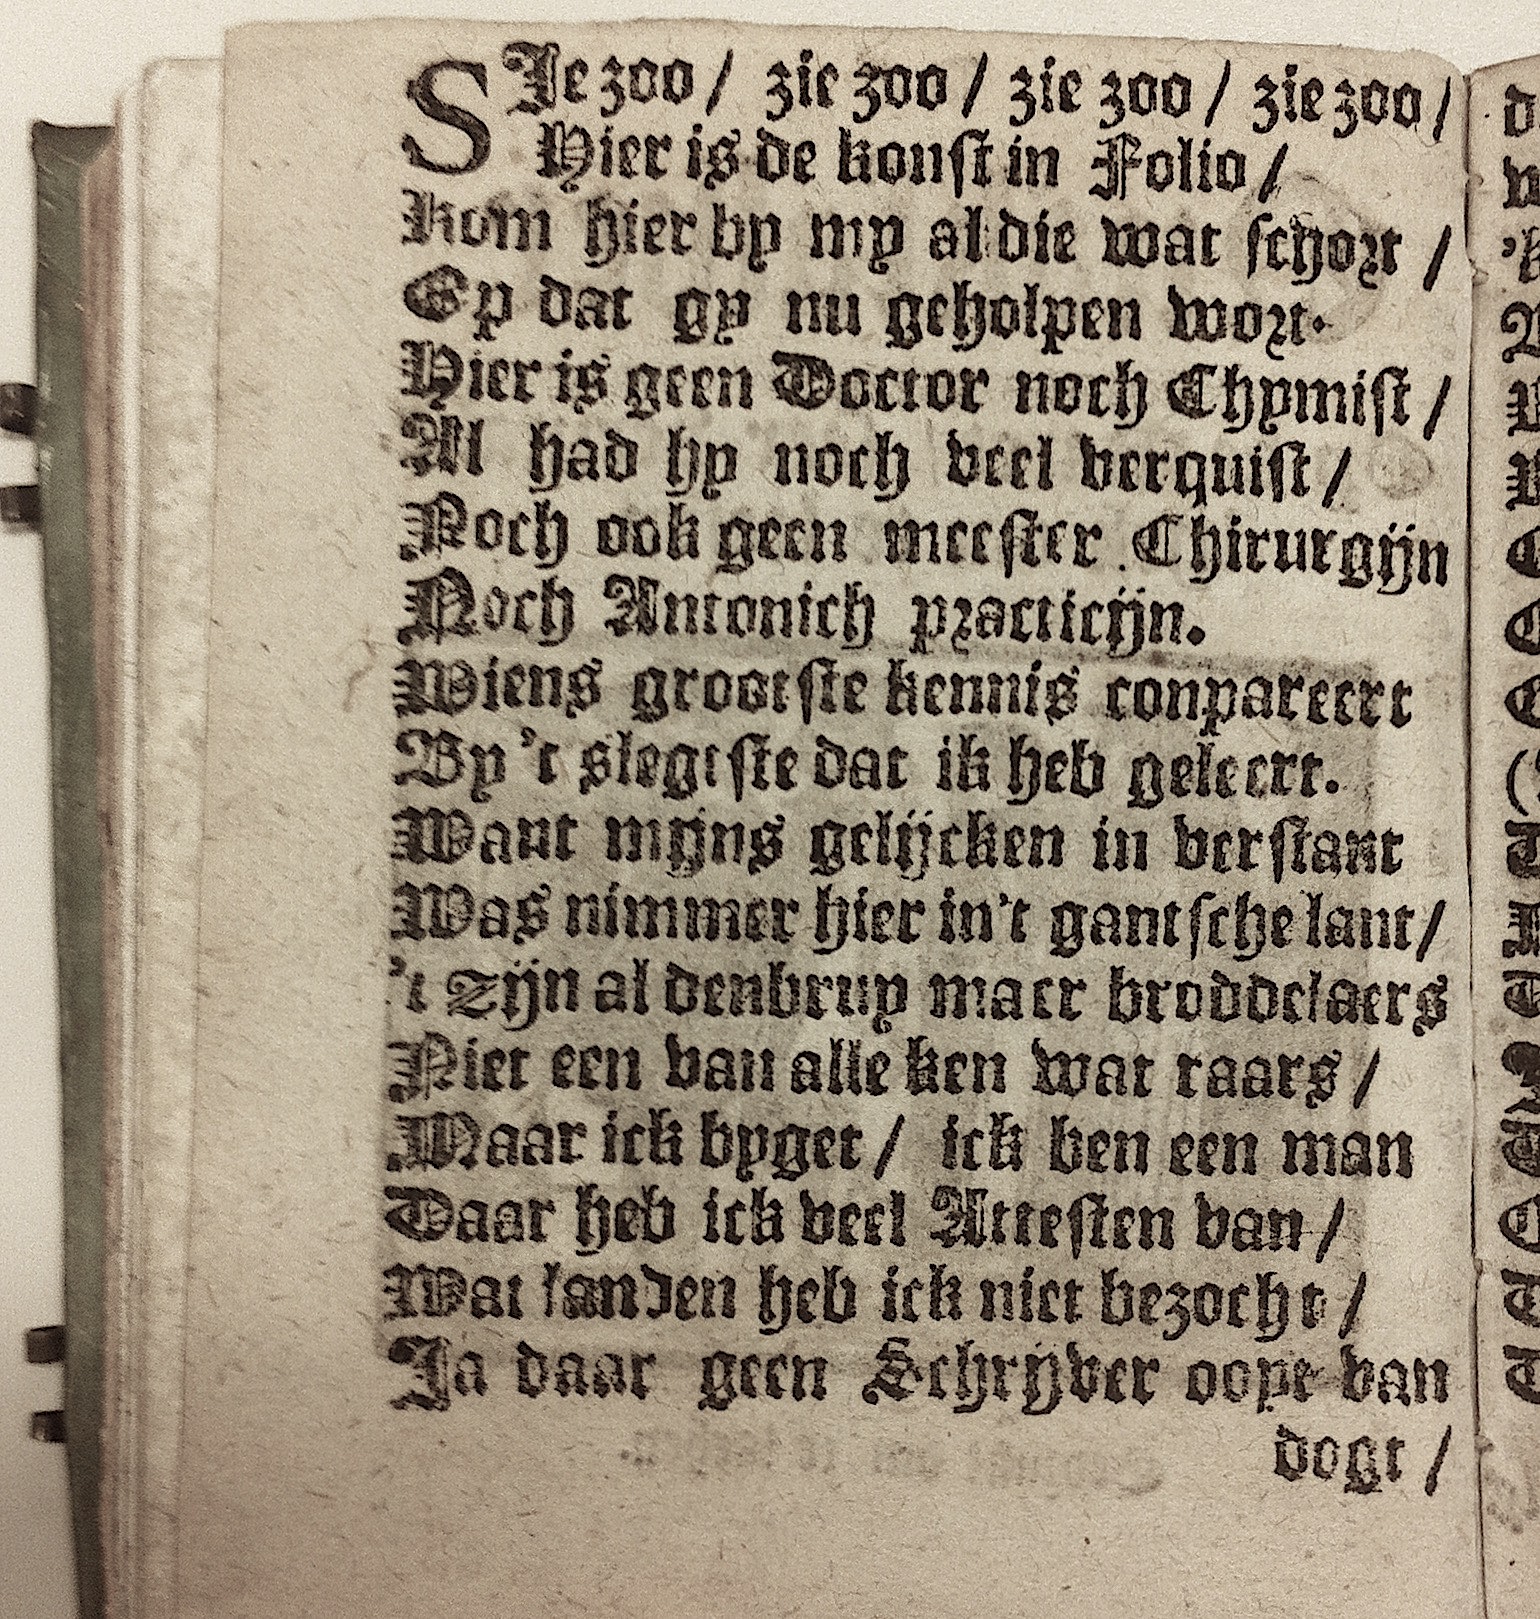 SJe zoo / zie zoo / zie zoo / zie zoo /
Hier is de konst in Folio /
Kom hier by my al die wat schort /
Ey dat gy nu geholpen wort.
Hier is geen Doctor noch Chymist /
Al had hy noch veel verquist /
Noch ook geen meester Chirurgijn
Noch Antonich practicijn.
Wiens grootste kennis conpareert
By 't slegtste dat ik heb geleert.
Want mijns gelijcken in verstant
Was nimmer hier in 't gantsche lant /
't Zijn al den bruy maer broddelaers
Niet een van alle ken wat raars /
Maar ick byget / ick ben een man
Daar heb ick veel Attesten van /
Wat landen heb ick niet bezocht /
Ja daar geen Schrijver oope van
dogt /